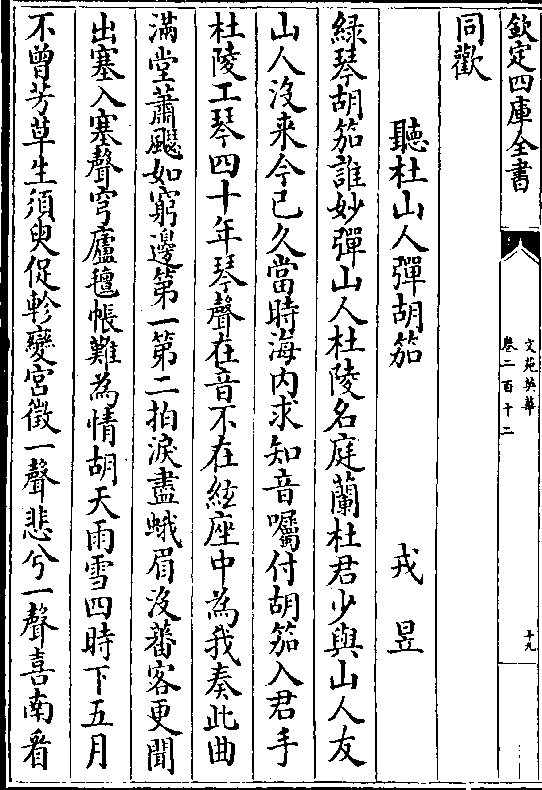 欽定四庫全書
文苑英華
卷二百十二
十九
同歡
聽杜山人彈胡笳 戎昱
綠琴胡笳誰妙彈山人杜陵名庭蘭杜君少與山人友
山人沒来今已久當時海內求知音囑付胡笳入君手
杜陵工琴四十年琴聲在音不在絃座中為我奏此曲
滿堂蕭颸如窮邊第一第二拍淚盡蛾眉沒蕃客更聞
出塞入塞聲穹廬氊帳難為情胡天雨雪四時下五月
不曾芳草生須臾促軫變宮徵一聲悲兮一聲喜南看